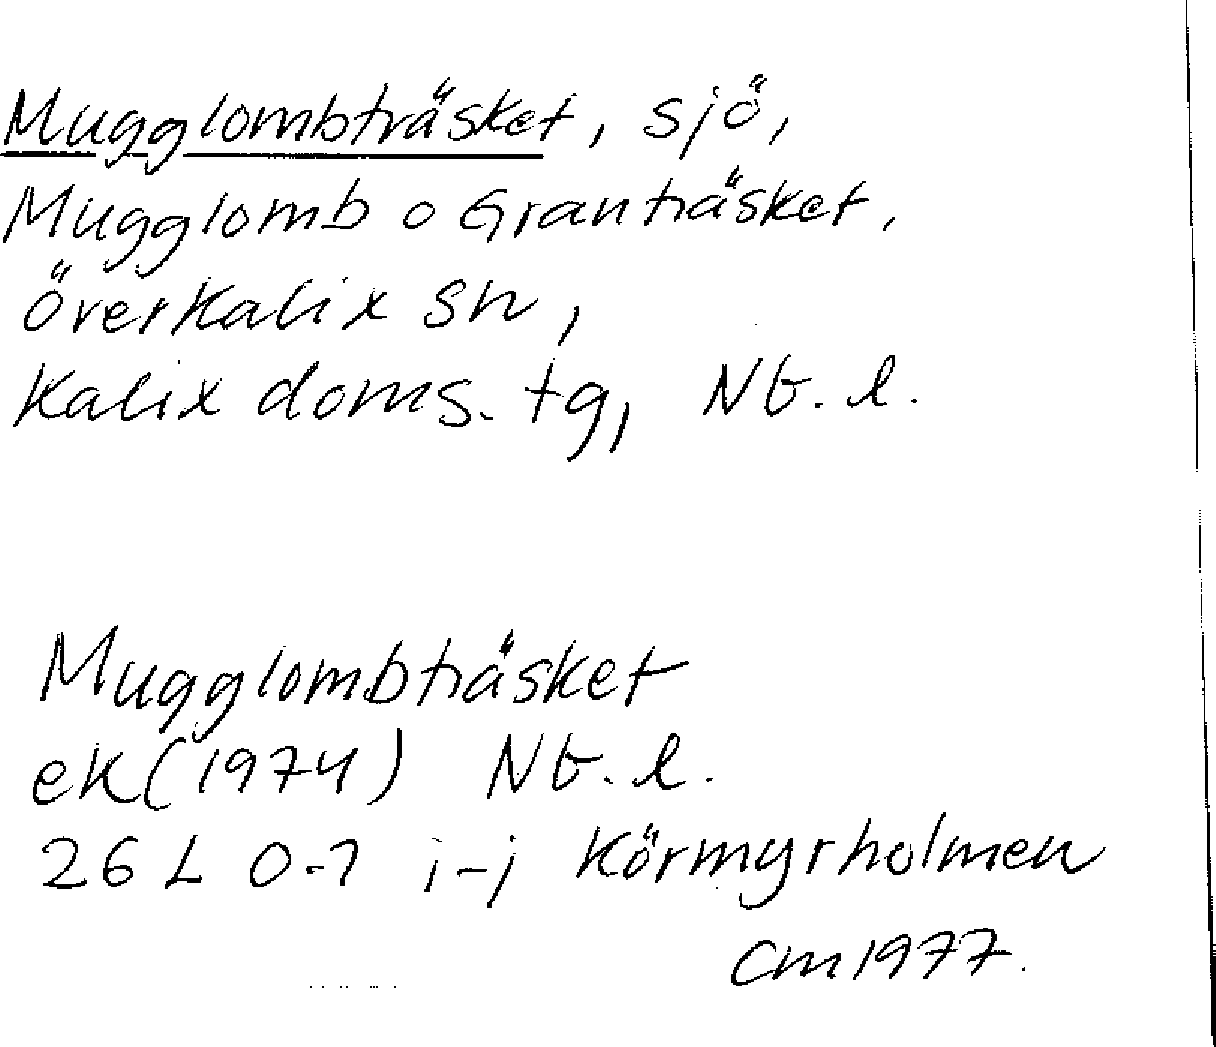 Mugglombträsket, sjö,
Mugglomb o Granträsket,
Överkalix sn,
Kalix doms. tg, Nb. l.
Mugglombträsket
ek (1974) Nb. l.
26 L 0-1 i-j Körmyrholmen
CM 1977.